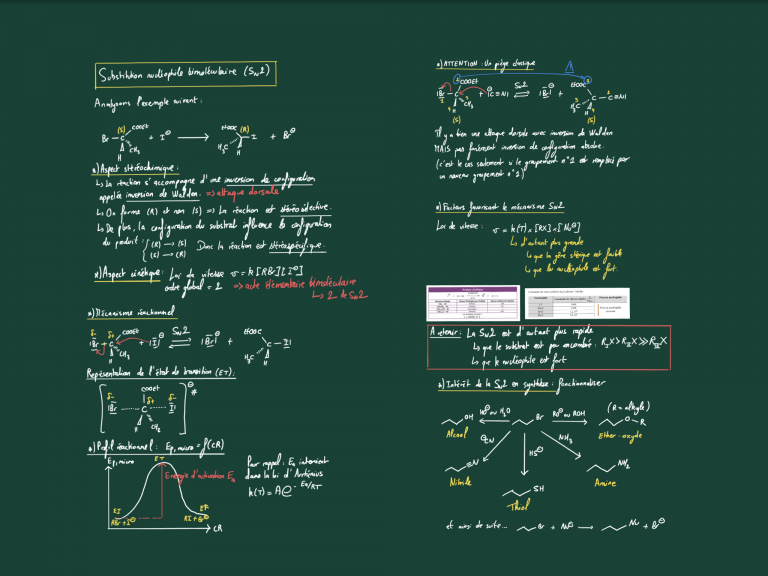 Substitution nucléophile bimoléculaire (SN2)
Analysons l'exemple suivant :
(S) COOEt
EtOOC (R)
Br C CH₃ H + I⊖ → H₃C C I H + Br⊖
Aspect stéréochimique :
↳ La réaction s'accompagne d'une inversion de configuration
appelée inversion de Walden. => attaque dorsale
↳ On forme (R) et non (S) => La réaction est stéréosélective.
↳ De plus, la configuration du substrat influence la configuration
du produit { (R) → (S)
(S) → (R)
Donc la réaction est stéréospécifique.
Aspect cinétique : Loi de vitesse v = k[RBr][I⊖]
ordre global = 2 => acte élémentaire bimoléculaire
↳ 2 de SN2
Mécanisme réactionnel
δ- δ+ COOEt SN2 EtOOC
Br C CH₃ H + I⊖ ⇌ Br⊖ + H₃C C I H
Représentation de l'état de transition (ET) :
COOEt ⊖ ≠
δ- δ+ δ-
Br C I
H CH₃
Profil réactionnel : Ep,micro = f(CR)
Ep,micro ET
Energie d'activation Ea
EI EF
RBr + I⊖ RI + Br⊖
CR
Pour rappel : Ea intervient
dans la loi d'Arrhénius
k(T) = A e -Ea/RT
ATTENTION : Un piège classique
COOEt EtOOC
Br C CH₃ H + C≡N ⇌ SN2 Br⊖ + H₃C C C≡N H
(S) (S)
Il y a bien une attaque dorsale avec inversion de Walden
MAIS pas forcément inversion de configuration absolue.
(c'est le cas seulement si le groupement n°1 est remplacé par
un nouveau groupement n°1)
Facteurs favorisant le mécanisme SN2
Loi de vitesse : v = k(T) × [RX] × [Nu⊖]
↳ d'autant plus grande
↳ que la gêne stérique est faible
↳ que le nucléophile est fort.
A retenir : La SN2 est d'autant plus rapide
↳ que le substrat est peu encombré. RIX > RIIX >> RIIIX
↳ que le nucléophile est fort
Intérêt de la SN2 en synthèse : fonctionnaliser
(R = alkyle)
OH HO⊖ ou H₂O Br RO⊖ ou ROH O R
Alcool Ether-oxyde
⊖CN HS⊖ NH₃
≡N NH₂
Nitrile SH Amine
Thiol
et ainsi de suite... Br + Nu⊖ → Nu + Br⊖